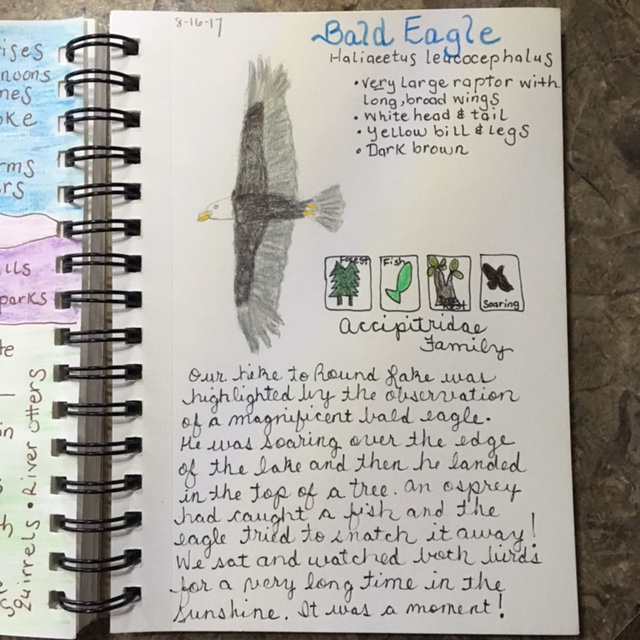 8-16-17
Bald Eagle
Haliaeetus leucocephalus
• very large raptor with
long, broad wings
• white head & tail
• yellow bill & legs
• Dark brown
Forest
Fish
Nest
Soaring
Accipitridae
Family
Our hike to Round Lake was
highlighted by the observation
of a magnificent bald eagle.
He was soaring over the edge
of the lake and then he landed
in the top of a tree. An osprey
had caught a fish and the
eagle tried to snatch it away!
We sat and watched both birds
for a very long time in the
sunshine. It was a moment!
ises
nes
oke
rms
rs
lls
parks
te
in
Squirrels • River Otters